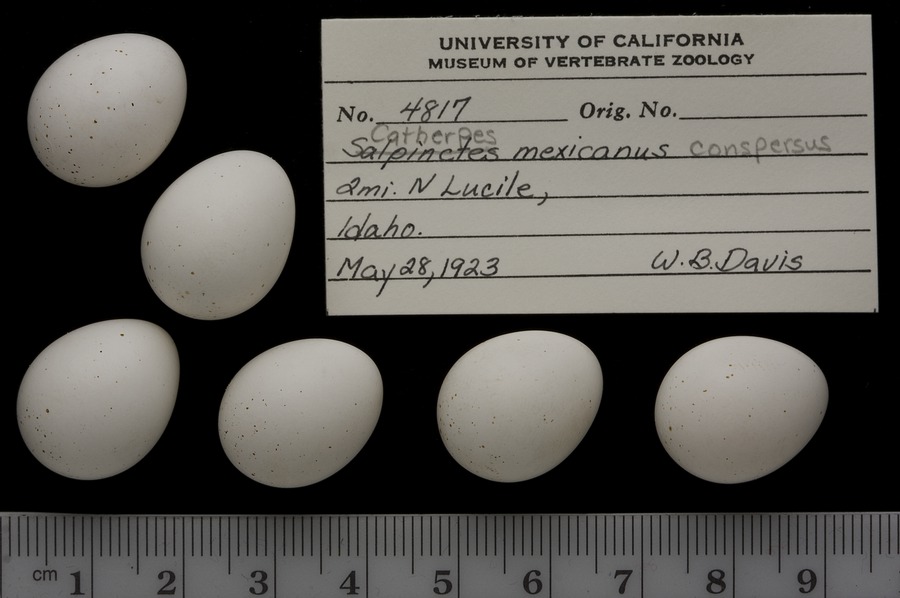 UNIVERSITY OF CALIFORNIA
MUSEUM OF VERTEBRATE ZOOLOGY
No. 4817 Orig. No.
Catherpes
Salpinctes mexicanus conspersus
2mi. N Lucile,
Idaho.
May 28, 1923 W.B.Davis
cm 1 2 3 4 5 6 7 8 9